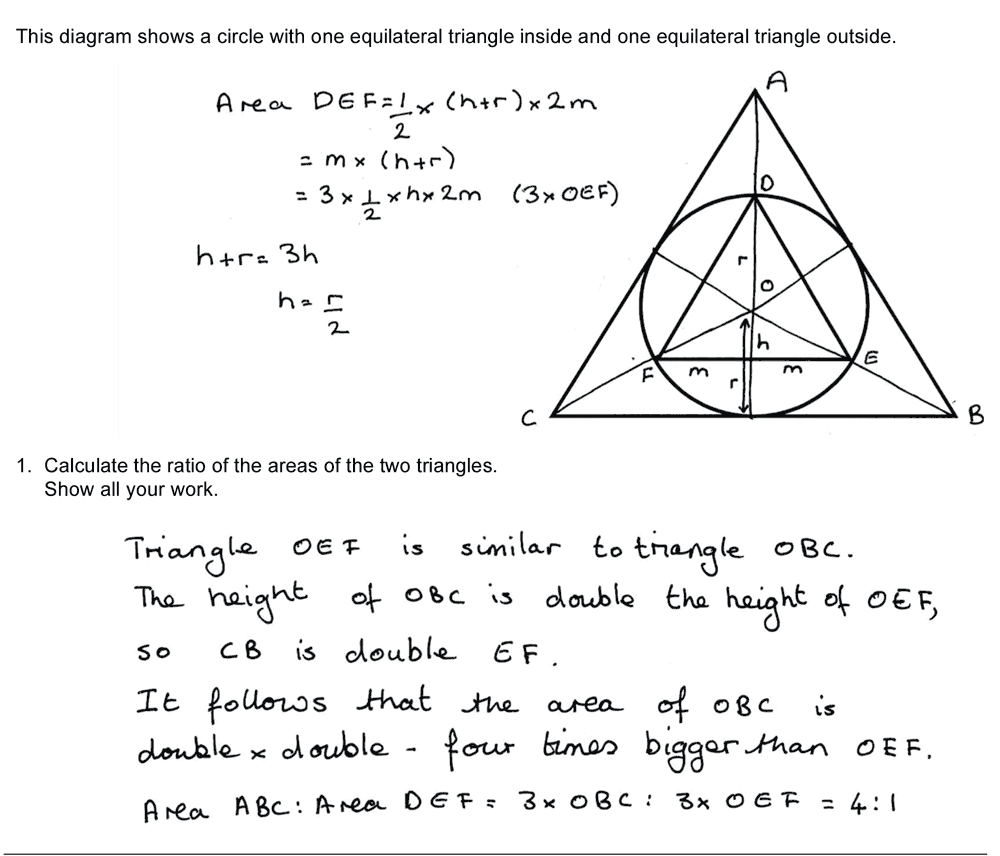 This diagram shows a circle with one equilateral triangle inside and one equilateral triangle outside.
Area DEF = 1/2 × (h+r) × 2m
= m × (h+r)
= 3 × 1/2 × h × 2m (3 × OEF)
h+r = 3h
h = r/2
A
D
r
O
h
E
F
m
r
m
C
B
1. Calculate the ratio of the areas of the two triangles.
Show all your work.
Triangle OEF is similar to triangle OBC.
The height of OBC is double the height of OEF,
so CB is double EF.
It follows that the area of OBC is
double × double - four times bigger than OEF.
Area ABC : Area DEF = 3 × OBC : 3 × OEF = 4:1